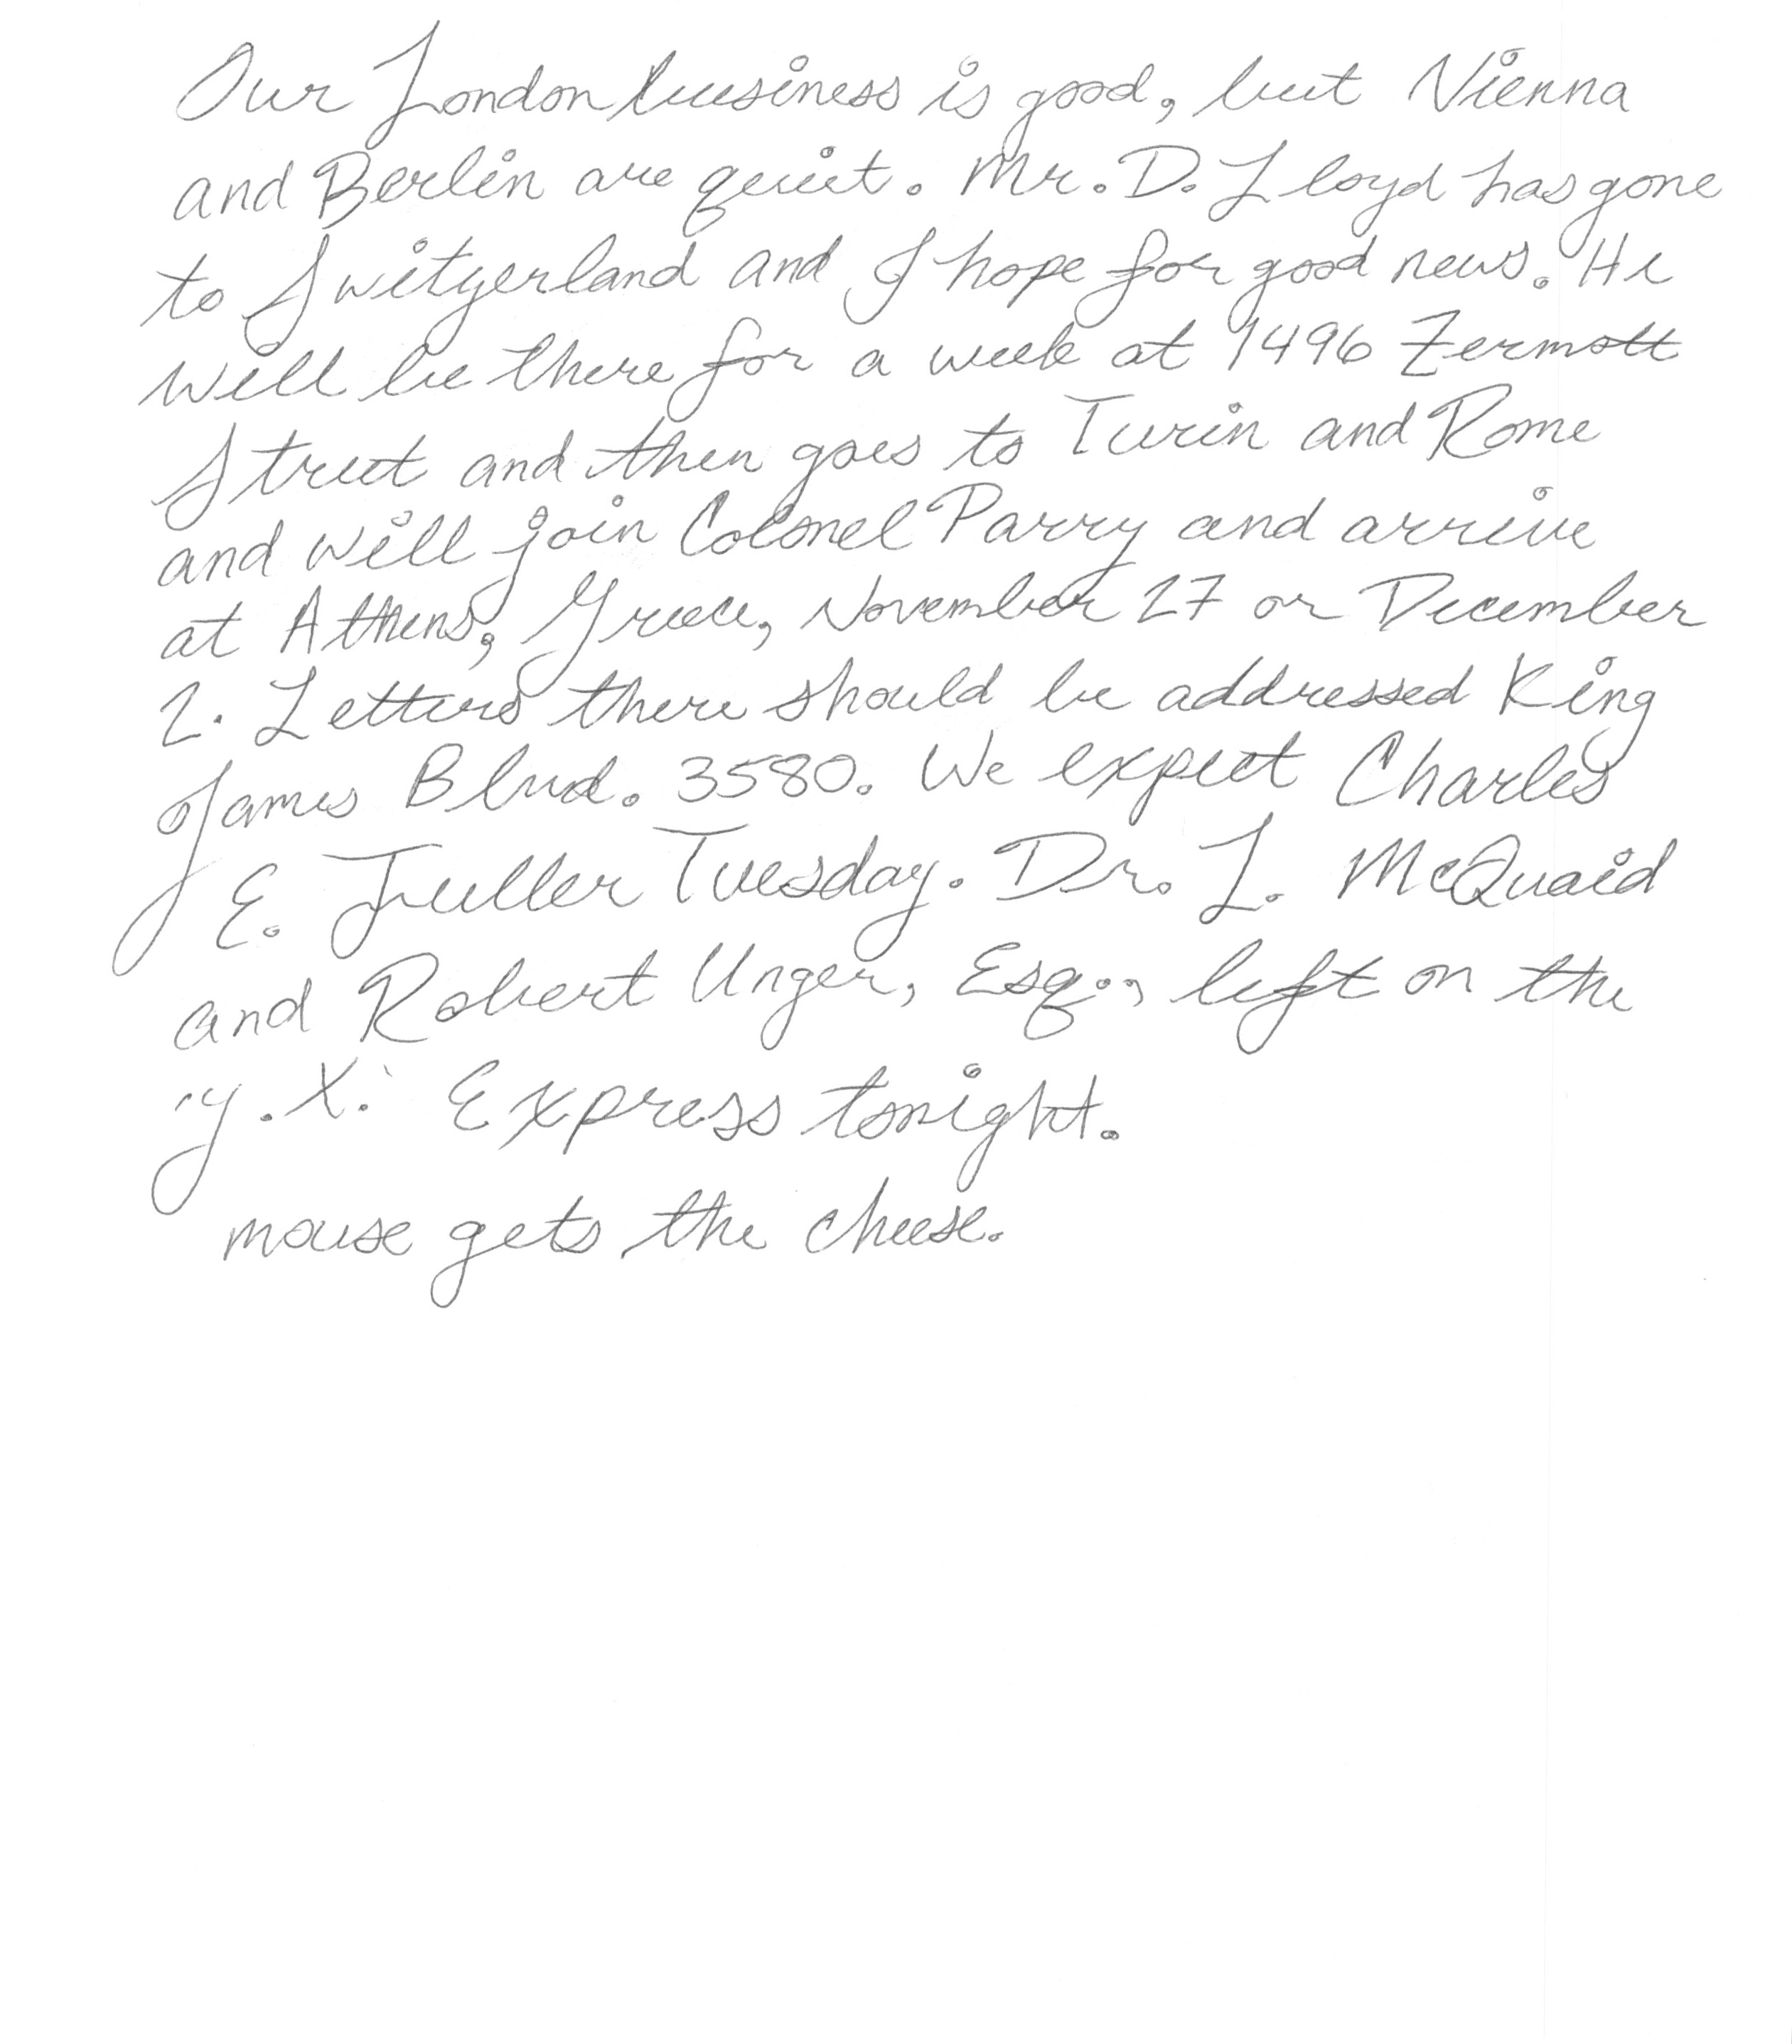 Our London business is good, but Vienna
and Berlin are quiet. Mr. D. Lloyd has gone
to Switzerland and I hope for good news. He
will be there for a week at 1496 Zermott
Street and then goes to Turin and Rome
and will join Colonel Parry and arrive
at Athens, Greece, November 27 or December
2. Letters there should be addressed King
James Blvd. 3580. We expect Charles
E. Fuller Tuesday. Dr. L. McQuaid
and Robert Unger, Esq., left on the
Y. X. Express tonight.
mouse gets the cheese.